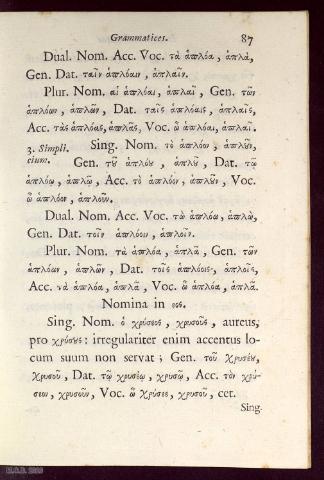 Grammatices. 87
Dual. Nom. Acc. Voc. τὰ ἁπλόα, ἁπλᾶ,
Gen. Dat. ταῖν ἁπλόαιν, ἁπλαῖν.
Plur. Nom. αἱ ἁπλόαι, ἁπλαῖ, Gen. τῶν
ἁπλόων, ἁπλῶν, Dat. ταῖς ἁπλόαις, ἁπλαῖς,
Acc. τὰς ἁπλόας, ἁπλᾶς, Voc. ὦ ἁπλόαι, ἁπλαῖ.
3. Simpli- Sing. Nom. τὸ ἁπλόον, ἁπλοῦν,
cium. Gen. τοῦ ἁπλόου, ἁπλοῦ, Dat. τῷ
ἁπλόῳ, ἁπλῷ, Acc. τὸ ἁπλόον, ἁπλοῦν, Voc.
ὦ ἁπλόον, ἁπλοῦν.
Dual. Nom. Acc. Voc. τὼ ἁπλόω, ἁπλὼ,
Gen. Dat. τοῖν ἁπλόοιν, ἁπλοῖν.
Plur. Nom. τὰ ἁπλόα, ἁπλᾶ, Gen. τῶν
ἁπλόων, ἁπλῶν, Dat. τοῖς ἁπλόοις, ἁπλοῖς,
Acc. τὰ ἁπλόα, ἁπλᾶ, Voc. ὦ ἁπλόα, ἁπλᾶ.
Nomina in εος.
Sing. Nom. ὁ χρύσεος, χρυσοῦς, aureus,
pro χρύσους: irregulariter enim accentus lo-
cum suum non servat; Gen. τοῦ χρυσέου,
χρυσοῦ, Dat. τῷ χρυσέῳ, χρυσῷ, Acc. τὸν χρύ-
σεον, χρυσοῦν, Voc. ὦ χρύσεε, χρυσοῦ, cet.
Sing.